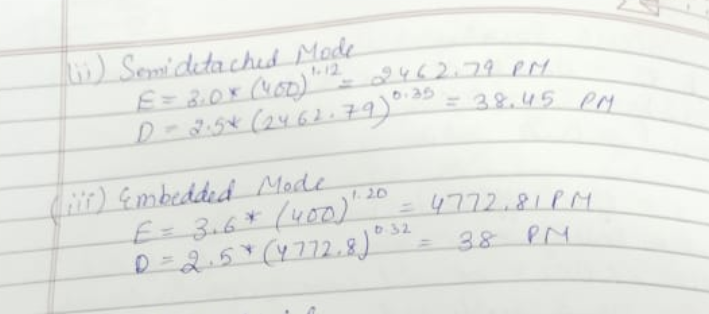 (ii) Semidetached Mode
E = 3.0 * (400)^1.12 = 2462.79 PM
D = 2.5* (2462.79)^0.35 = 38.45 PM
(iii) Embedded Mode
E = 3.6 * (400)^1.20 = 4772.81 PM
D = 2.5 * (4772.8)^0.32 = 38 PM